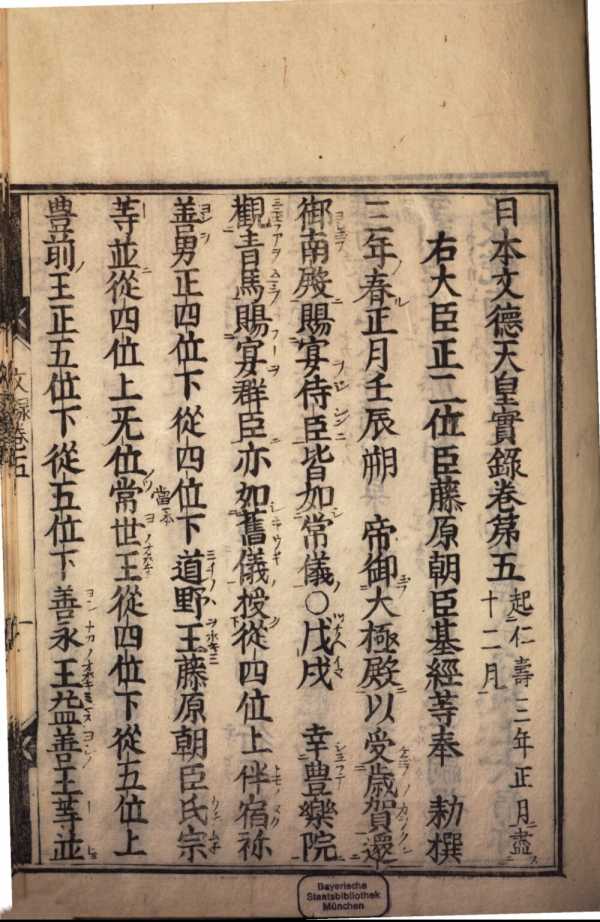 日本文德天皇實錄卷第五 起仁壽三年正月盡
十二月
右大臣正二位臣藤原朝臣基經等奉 勅撰
三年春正月壬辰朔 帝御大極殿以受歲賀還
御南殿賜宴侍臣皆如常儀○戊戌 幸豊樂院
觀青馬賜宴群臣亦如舊儀授從四位上伴宿祢
善男正四位下從四位下道野王藤原朝臣氏宗
等並從四位上无位常世王從四位下從五位上
豊前王正五位下從五位下善永王益善王等並
文録卷五
Bayerische
Staatsbibliothek
München